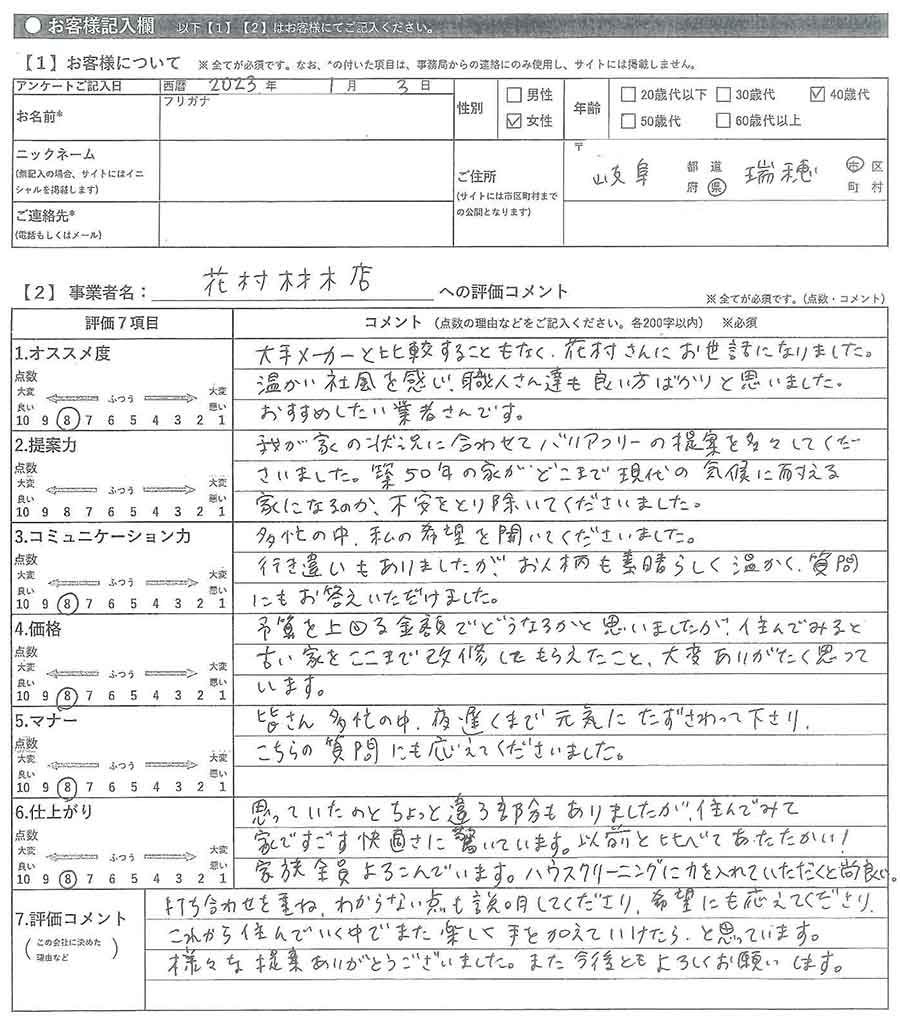 ● お客様記入欄 以下【1】【2】はお客様にてご記入ください。
【1】お客様について ※ 全てが必須です。なお、*の付いた項目は、事務局からの連絡にのみ使用し、サイトには掲載しません。
アンケートご記入日 西暦 2023 年 1 月 3 日
お名前* フリガナ
性別 □ 男性 ☑ 女性
年齢 □ 20歳代以下 □ 30歳代 ☑ 40歳代
□ 50歳代 □ 60歳代以上
ニックネーム
(無記入の場合、サイトにはイニ
シャルを掲載します)
ご連絡先*
(電話もしくはメール)
ご住所
(サイトには市区町村まで
の公開となります)
〒
岐阜 都 道 府 県 瑞穂 市 区 町 村
【2】事業者名: 花村材木店 への評価コメント
※全てが必須です。(点数・コメント)
評価7項目 コメント (点数の理由などをご記入ください。各200字以内) ※必須
1.オススメ度
点数
大変 大変
良い ふつう 悪い
10 9 8 7 6 5 4 3 2 1
大手メーカーと比較することもなく、花村さんにお世話になりました。
温かい社風を感じ、職人さん達も良い方ばかりと思いました。
おすすめしたい業者さんです。
2.提案力
点数
大変 大変
良い ふつう 悪い
10 9 8 7 6 5 4 3 2 1
我が家の状況に合わせてバリアフリーの提案を多々してくだ
さいました。築50年の家がどこまで現代の気候に耐える
家になるのか、不安をとり除いてくださいました。
3.コミュニケーション力
点数
大変 大変
良い ふつう 悪い
10 9 8 7 6 5 4 3 2 1
多忙の中、私の希望を聞いてくださいました。
行き違いもありましたが、お人柄も素晴らしく温かく、質問
にもお答えいただけました。
4.価格
点数
大変 大変
良い ふつう 悪い
10 9 8 7 6 5 4 3 2 1
予算を上回る金額でどうなるかと思いましたが、住んでみると
古い家をここまで改修したもらえたこと、大変ありがたく思って
います。
5.マナー
点数
大変 大変
良い ふつう 悪い
10 9 8 7 6 5 4 3 2 1
皆さん多忙の中、夜遅くまで元気にたずさわって下さり、
こちらの質問にも応えてくださいました。
6.仕上がり
点数
大変 大変
良い ふつう 悪い
10 9 8 7 6 5 4 3 2 1
思っていたのとちょっと違う部分もありましたが、住んでみて
家ですごす快適さに驚いています。以前と比べてあたたかい!
家族全員よろこんでいます。ハウスクリーニングに力を入れていただくと尚良い。
7.評価コメント
(この会社に決めた
理由など)
打ち合わせを重ね、わからない点も説明してくださり、希望にも応えてくださり、
これから住んでいく中でまた楽しく手を加えていけたら、と思っています。
様々な提案ありがとうございました。また今後ともよろしくお願いします。